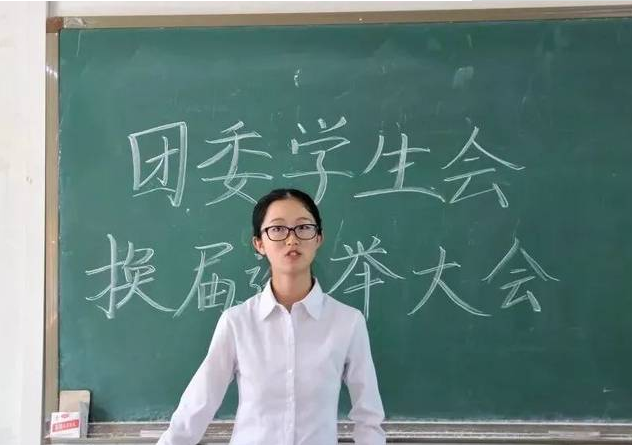 团委学生会
换届选举大会